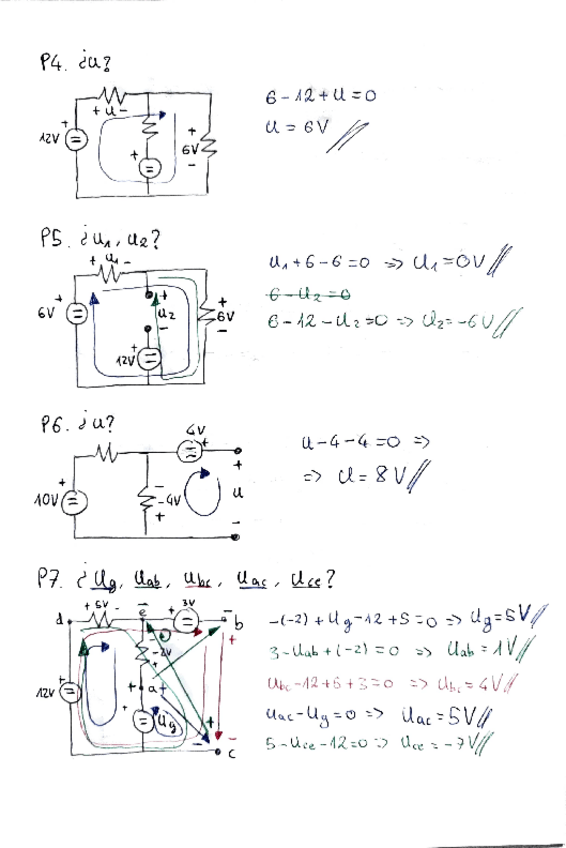 P4. ¿u?
+ u -
12V
+
+
6V
+
-
6-12+u=0
u = 6V
P5. ¿u₁, u₂?
+ u₁ -
6V
+
+
u₂
-
12V
+
+
6V
-
u₁+6-6=0 => u₁=0V
6-u₂=0
6-12-u₂=0 => u₂=-6V
P6. ¿u?
4V
+
10V
+
-
-4V
+
+
u
-
u-4-4=0 =>
=> u=8V
P7. ¿ug, uab, ubc, uac, uce?
d
+ 5V -
e
+ 3V -
b
-2V
+
12V
+
+ a +
+
ug
+
-
+
-
c
-(-2)+ug-12+5=0 => ug=5V
3-uab+(-2)=0 => uab=1V
ubc-12+5+3=0 => ubc=4V
uac-ug=0 => uac=5V
5-uce-12=0 => uce=-7V